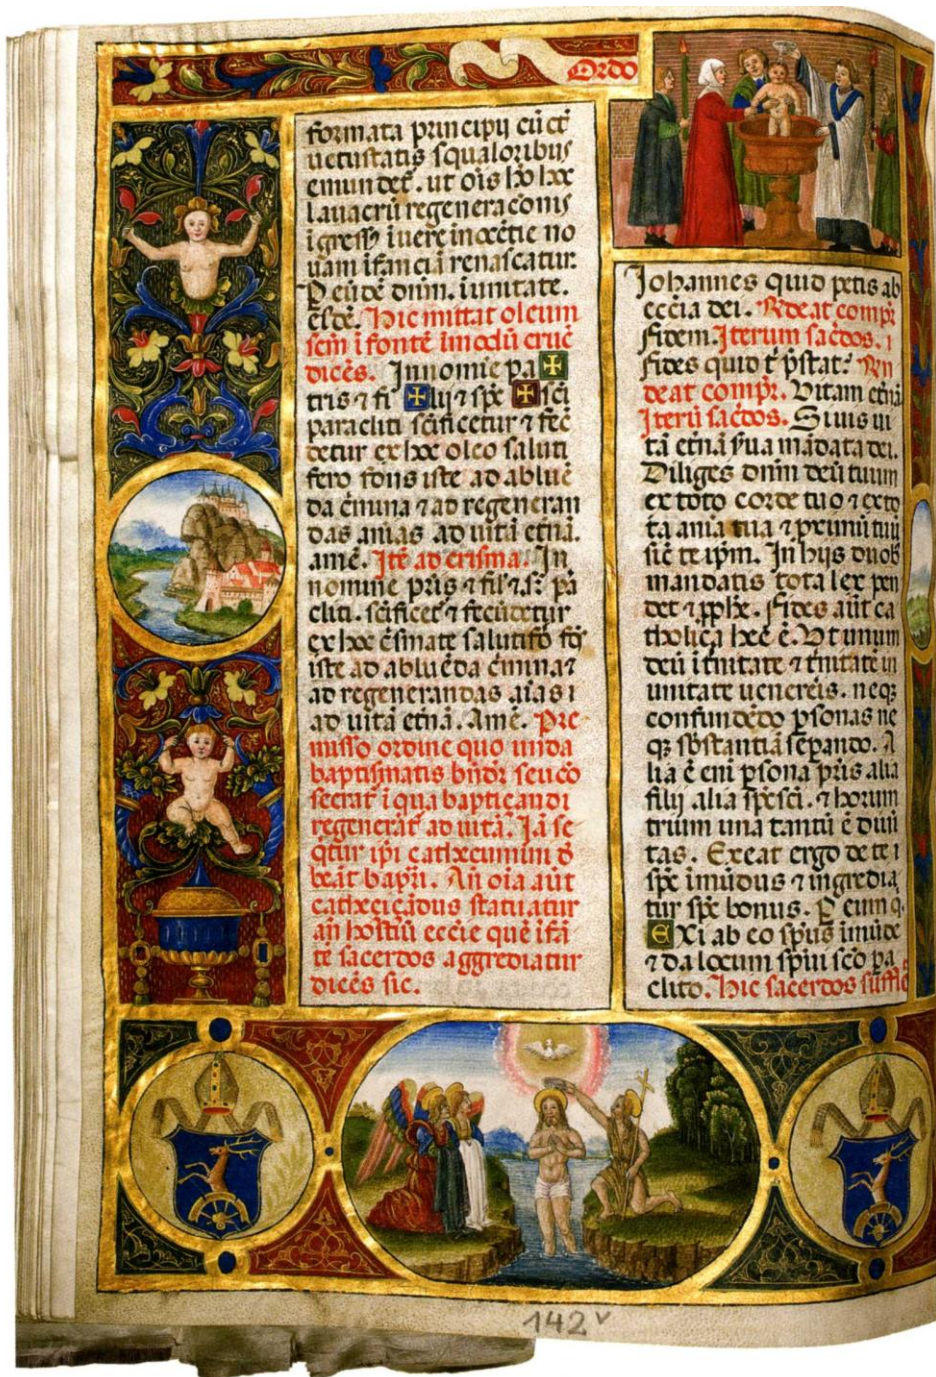 Ordo
formata principij cũ cũ
uetustatis squaloribus
emundet̃. ut oĩs hõ hoc
lauacrũ regeneracõnis
ĩgress9 ĩ uere inocẽtie no
uam ĩfanciã renascatur.
P eũdẽ dñm. ĩ unitate.
eiusdẽ. Hic mittat oleum
scm̃ ĩ fontẽ ĩ modũ crucẽ
dicẽs. In nomie pa ✠
tris ⁊ fi ✠ lij ⁊ spc̃ ✠ sci
paracliti sc̃ificetur ⁊ fec̃
detur ex hoc oleo saluti
fero fons iste ad abluẽ
da c̃mina ⁊ ad regeneran
das anĩas ad uitã etnã.
amẽ. Itẽ ad crisma. In
nomine pr̃is ⁊ fil̃ ⁊ s.̃ pa
cliti. sc̃ificet̃ ⁊ fecũdetur
ex hoc c̃smate salutifo fõs
iste ad abluẽda c̃mina ⁊
ad regenerandas aĩas ĩ
ad uitã etnã. Amẽ. Pre
misso ordine quo unda
baptismatis bñdr̃ seu cõ
secrat̃ ĩ qua bapticandi
regenerãt̃ ad uitã. Iã se
q̃tur ip̃i cathecumini d̃
beãt bapr̃i. Añ oĩa aũt
cathecicãdus statuatur
añ hostiũ ecc̃ie quẽ ĩfã
tẽ sacerdos aggrediatur
dicẽs sic.
Johannes quid petis ab
ecc̃ia dei. R̃deat comp̃r
fidem. Iterum sac̃dos. ĩ
fides quid t̃ p̃stat. Rñ
deat comp̃r. Vitam etnã
Iterũ sac̃dos. Si uis ui
tã etnã s̃ua mãdata dei.
Diliges dñm deũ tuum
ex toto corde tuo ⁊ ex to
ta anĩa tua ⁊ proximũ tuũ
sic̃ te ip̃m. In hijs duob9
mandatis tota lex pen
det ⁊ p̃phẽ. fides aũt ca
tholica hec ẽ. Vt unum
deũ ĩ t̃nitate ⁊ t̃nitatẽ in
unitate ueneris. neq3
confundẽdo p̃sonas ne
q3 sb̃stantiã sep̃ando. A
lia ẽ eni p̃sona pr̃is alia
filij alia sp̃c sci. ⁊ horum
trium una tantũ ẽ diuĩ
tas. Exeat ergo de te ĩ
sp̃c ĩmũdus ⁊ ingredia
tur sp̃c bonus. P eum q.
EXi ab eo sp̃us ĩmũde
⁊ da locum sp̃ui sc̃o pa
clito. Hic sacerdos suffl̃e
142 v